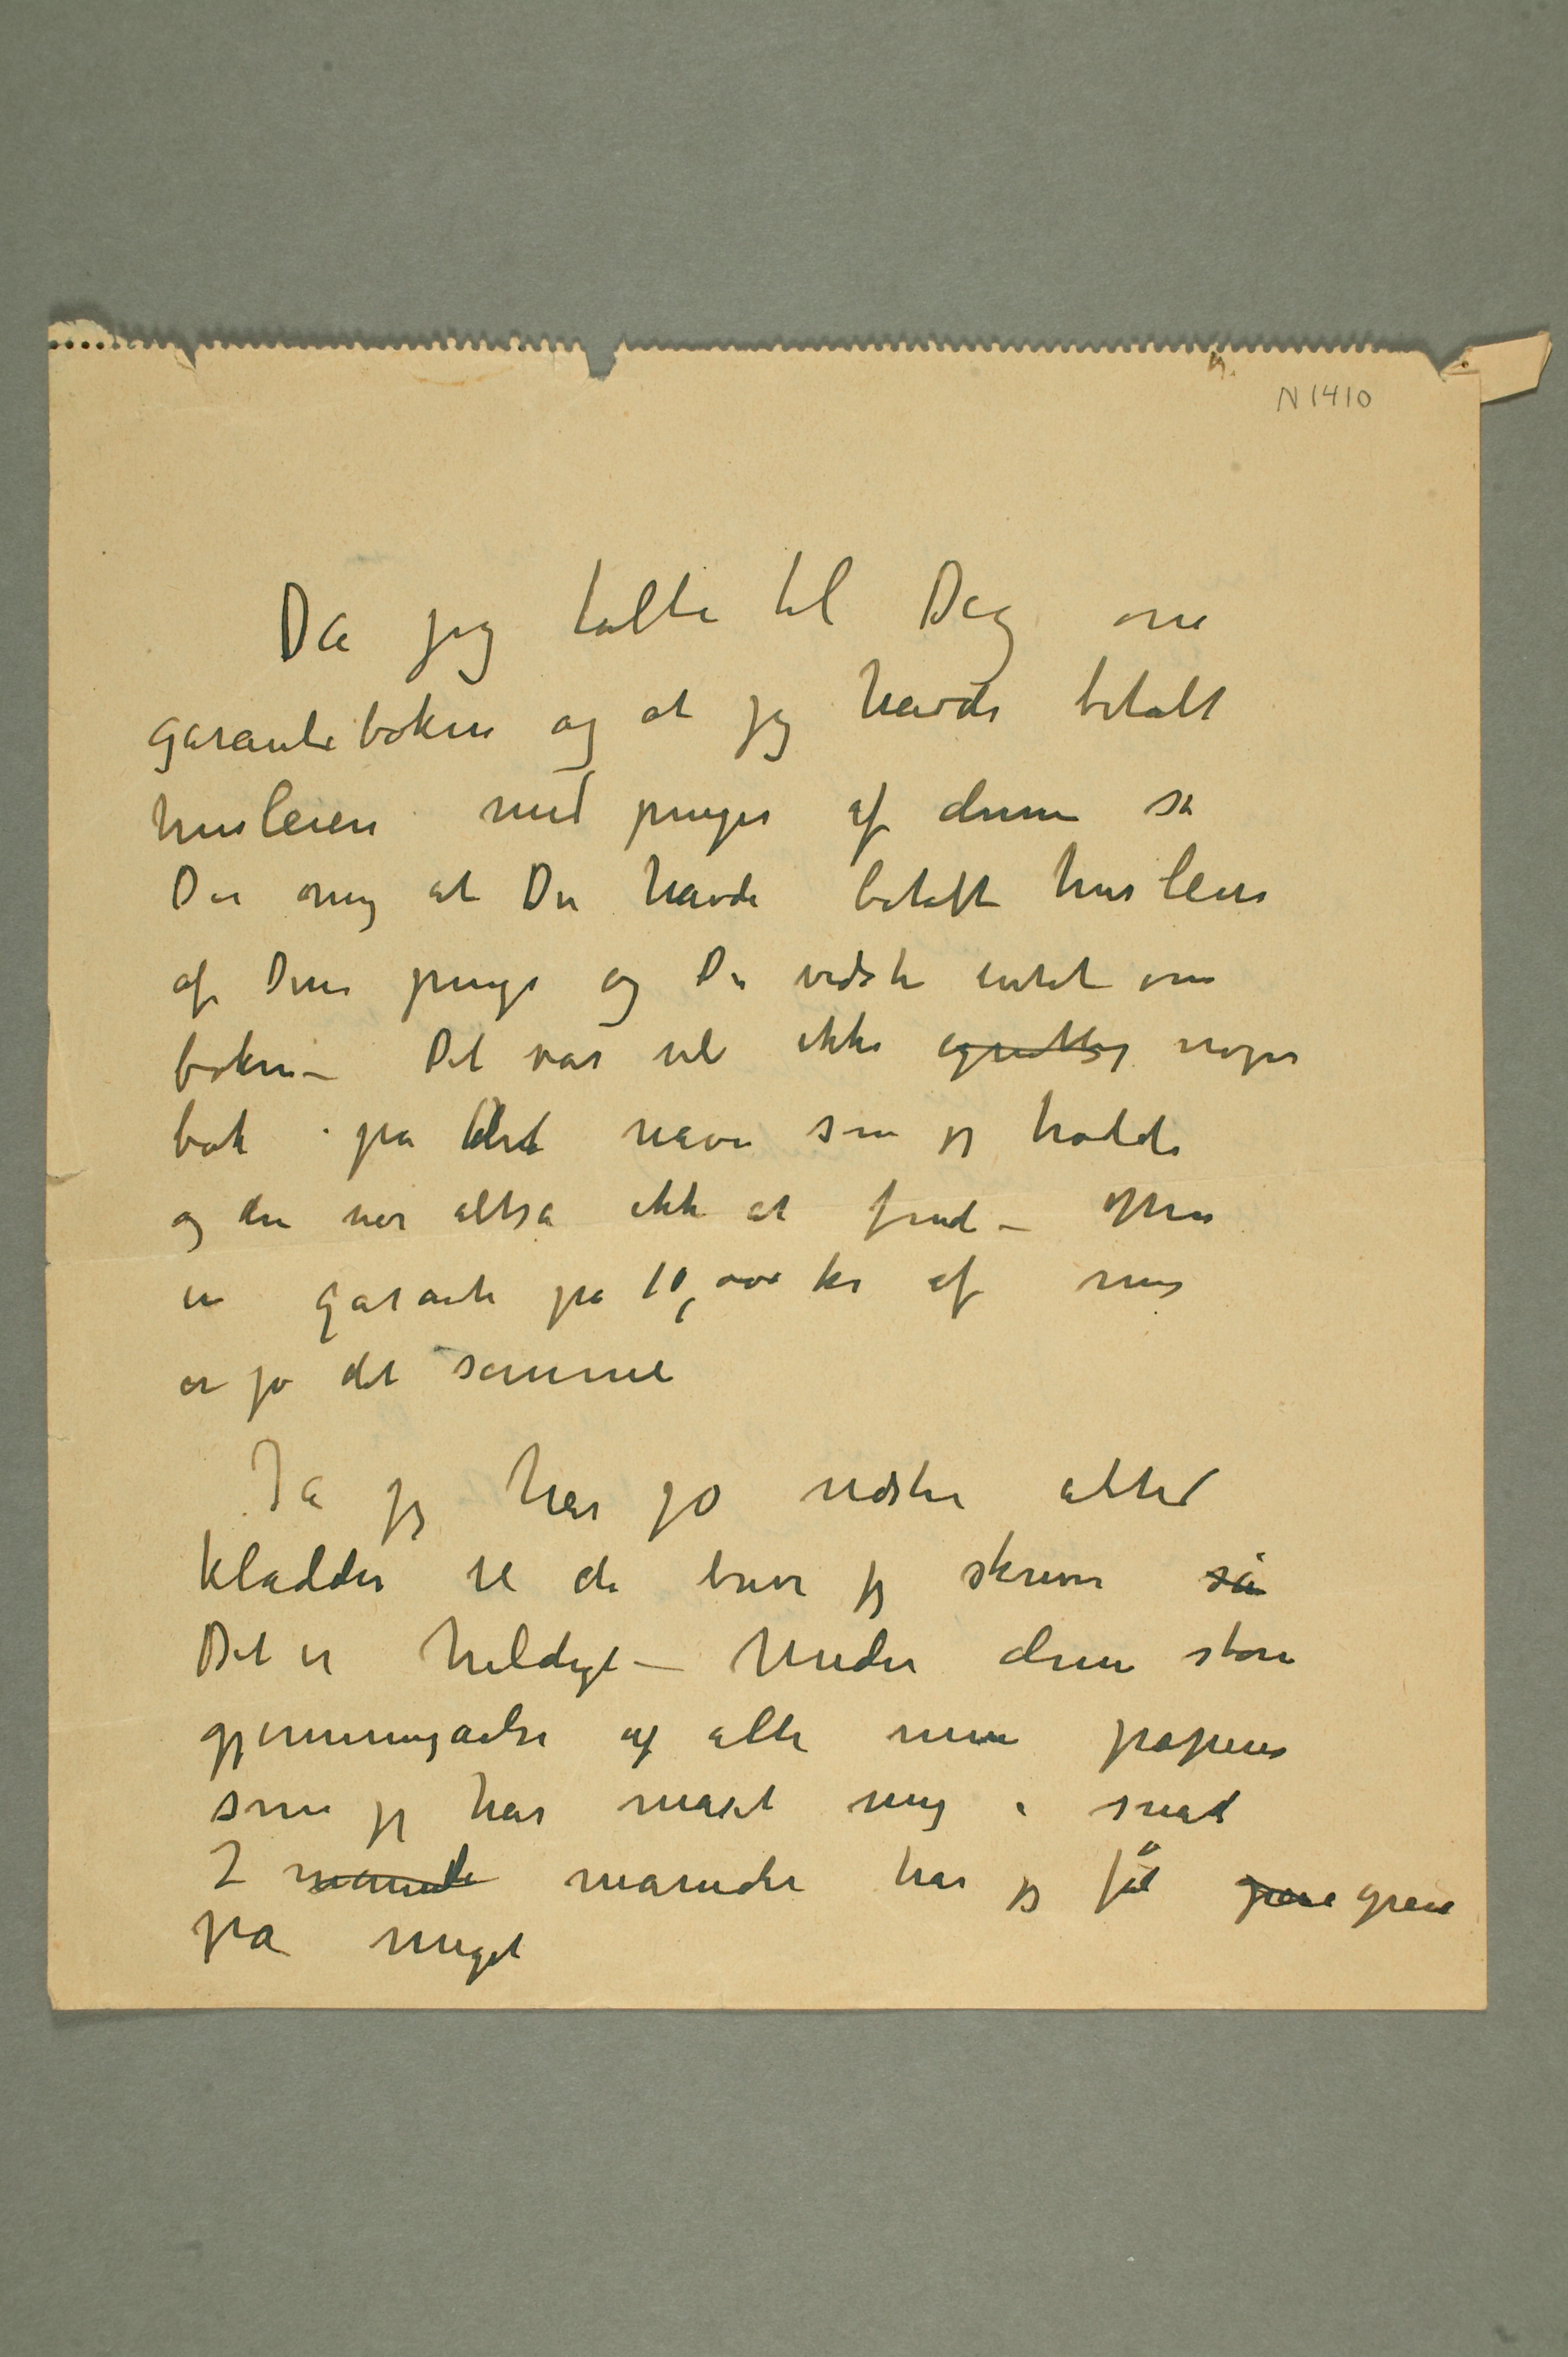 N 1410
Da jeg talte til Dig om
garantiboken og at jeg havde betalt
husleien med penger af denne sa
Du mig at Du havde betalt husleien
af Dine penge og Du vidste intet om
boken – Det var vel ikke egentlig nogen
bok på det navn som jeg trodde
og den var altså ikke at finde – Men
en garanti på 10,000 kr af mig
er jo det samme
Ja jeg har jo næsten altid
kladder til de brever jeg skriver så
Det er heldigt – Under denne store
gjennemgåelse af alle mine papirer
som jeg har maset mig i snart
2 månede måneder har jeg fåt greie greie
på meget